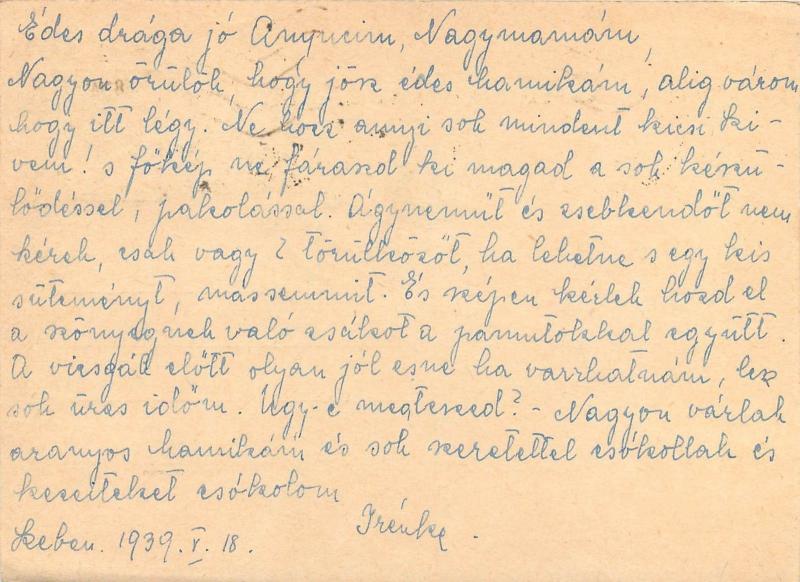 Édes drága jó Anyucim, Nagymamám,
Nagyon örülök, hogy jösz édes mamikám, alig várom
hogy itt légy. Ne hozz annyi sok mindent kicsi Ki-
vem! s főkép ne fáraszd ki magad a sok készü-
lődéssel, pakolással. Ágyneműt és zsebkendőt nem
kérek, csak vagy 2 törülközőt, ha lehetne s egy kis
süteményt, mássemmit. És szépen kérlek hozd el
a szőnyegnek való zsákot a pamutokkal együtt.
A vizsgák előtt olyan jól esne ha varrhatnám, lesz
sok üres időm. Úgy-e megteszed? - Nagyon várlak
aranyos mamikám és sok szeretettel csókollak és
kezeiteket csókolom
Irénke.
Szeben. 1939. V. 18.